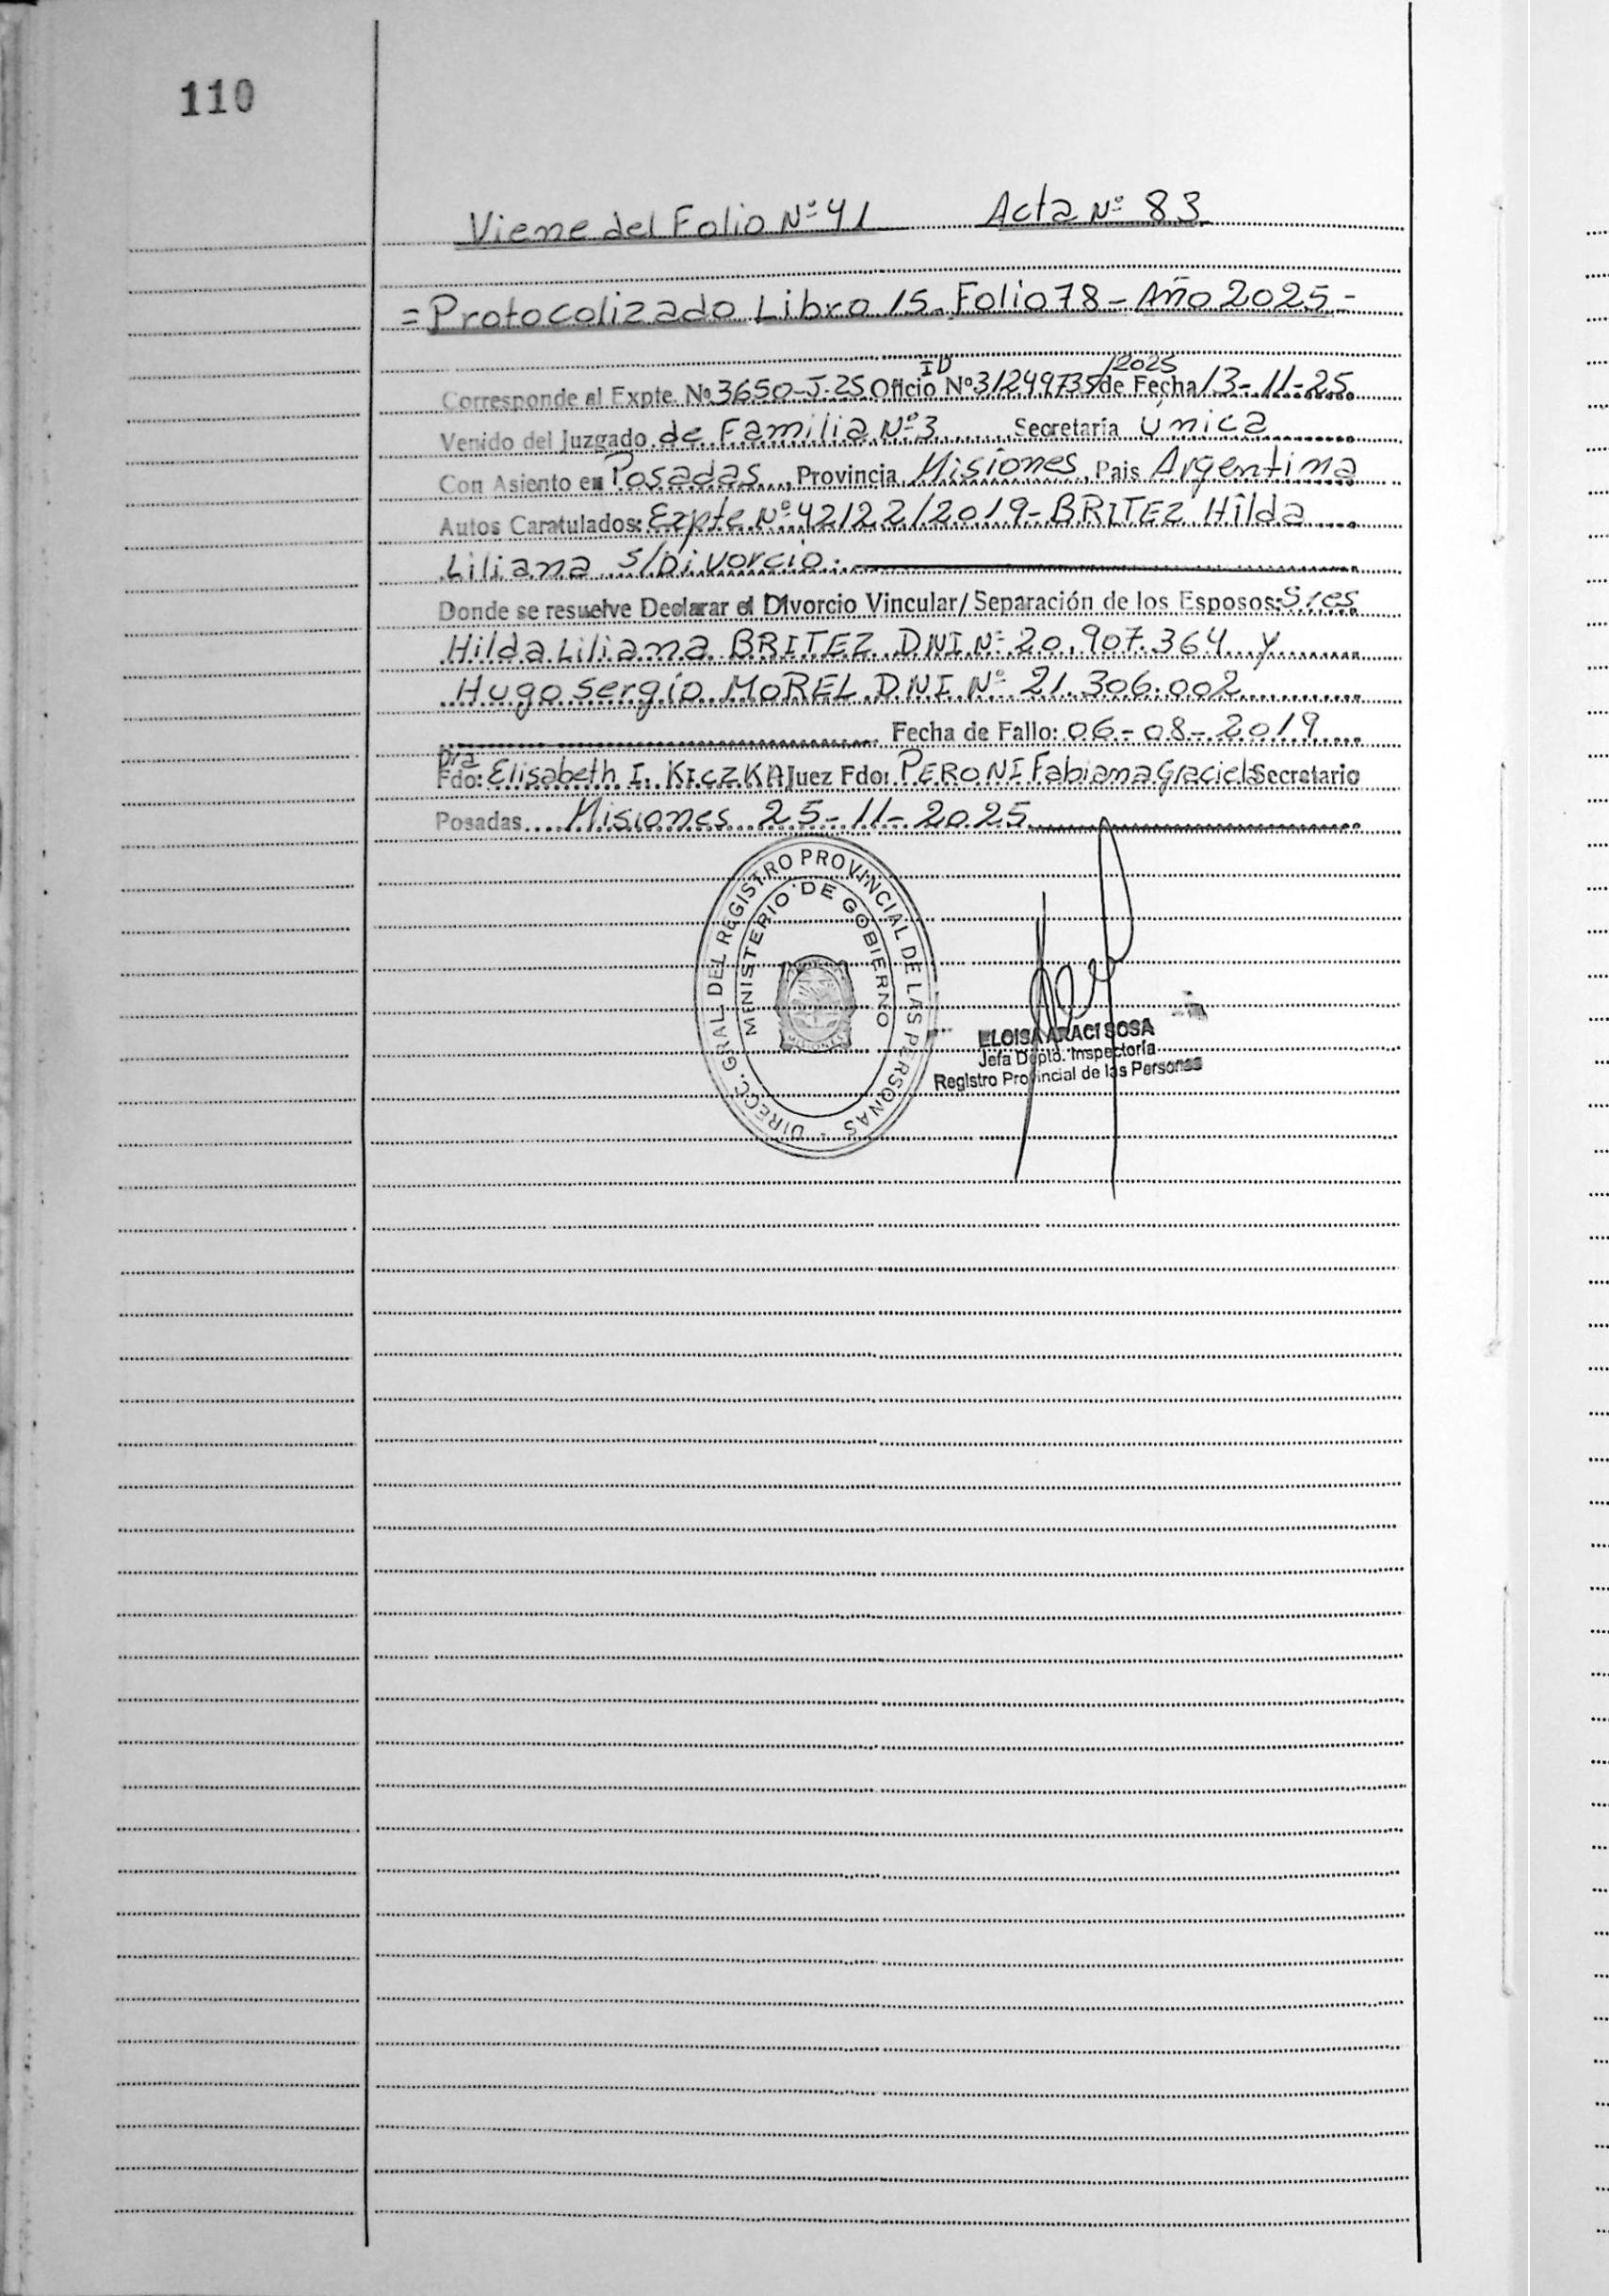 110
Viene del Folio Nº 41 Acta Nº 83
= Protocolizado Libro 15 - Folio 78 - Año 2025 -
ID /2025
Corresponde al Expte. Nº 3650-J-25 Oficio Nº 31249735 de Fecha 13-11-25
Venido del Juzgado de Familia Nº 3 Secretaría Única
Con Asiento en Posadas, Provincia Misiones, Pais Argentina
Autos Caratulados: Expte Nº 42122/2019 - BRITEZ Hilda
Liliana s/Divorcio.
Donde se resuelve Declarar el Divorcio Vincular/Separación de los Esposos: Sres
Hilda Liliana BRITEZ DNI Nº 20.907.364 y
Hugo Sergio MOREL DNI Nº 21.306.002
Fecha de Fallo: 06-08-2019
Dra
Fdo: Elisabeth I. KICZKA Juez Fdo: PERONI Fabiana Graciela Secretario
Posadas Misiones 25-11-2025
DIRECC. GRAL. DEL REGISTRO PROVINCIAL DE LAS PERSONAS -
MINISTERIO DE GOBIERNO
ELOISA ARACI SOSA
Jefa Dpto. Inspectoría
Registro Provincial de las Personas